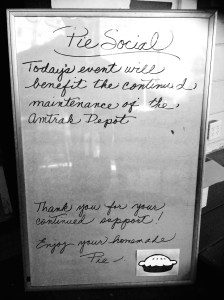 Pie Social
Today's event will
benefit the continued
maintenance of the
Amtrak Depot
Thank you for your
continued support!
Enjoy your homemade
Pie -